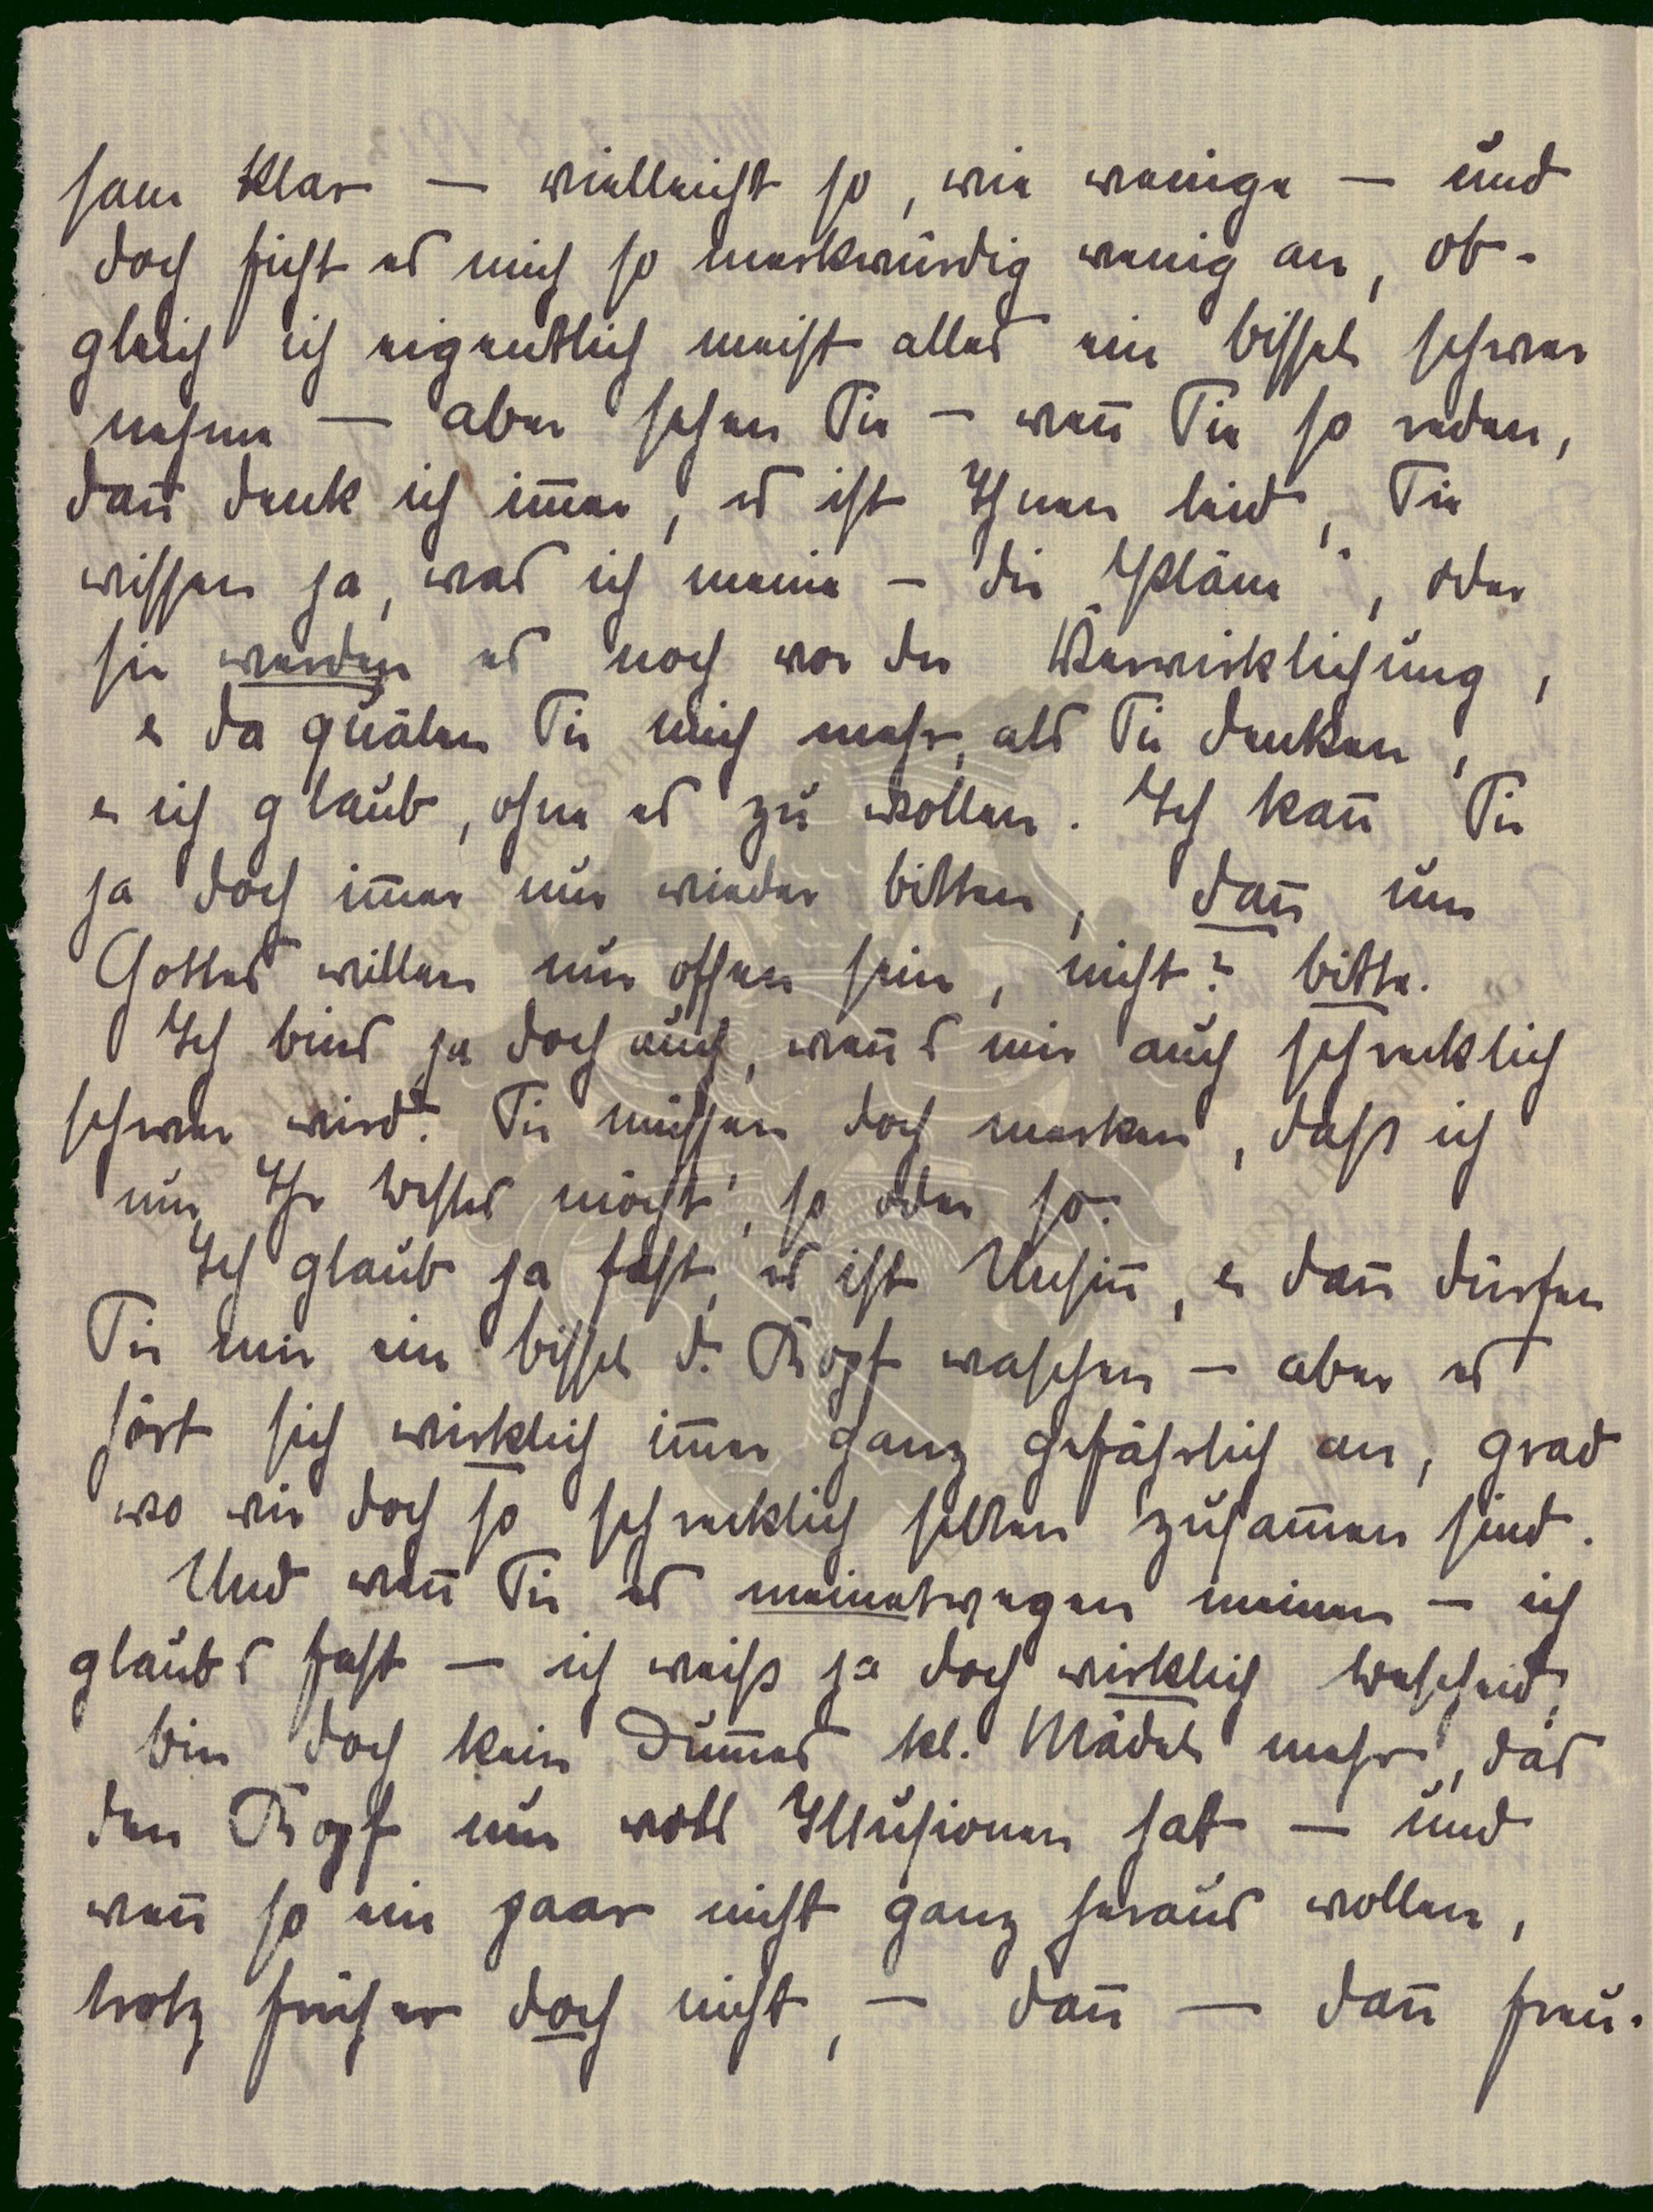 sam klar — vielleicht so, wie wenige — und
doch ficht es mich so merkwürdig wenig an, ob-
gleich ich eigentlich meist alles ein bissel schwer
nehme — aber sehen Sie — wen̄ Sie so reden,
dan̄ denk ich im̄er, es ist Ihnen leid, Sie
wissen ja, was ich meine — die „Pläne“, oder
sie werden es noch vor der Verwirklichung,
u da quälen Sie mich mehr, als Sie denken,
u ich glaub, ohne es zu wollen. Ich kan̄ Sie
ja doch im̄er nur wieder bitten, dan̄ um
Gottes willen nur offen sein, nicht? bitte.
Ich bins ja doch auch, wen̄s mir auch schrecklich
schwer wird. Sie müssen doch merken, daß ich
nur Ihr Bestes möcht', so oder so.
Ich glaub ja fast, es ist Unsin̄, u dan̄ dürfen
Sie mir ein bissel d. Kopf waschen — aber es
hört sich wirklich im̄er ganz gefährlich an, grad
wo wir doch so schrecklich selten zusam̄en sind.
Und wen̄ Sie es meinetwegen meinen — ich
glaubs fast — ich weiß ja doch wirklich Bescheid,
bin doch kein dum̄es kl. Mädel mehr, das
den Kopf nur voll Illusionen hat — und
wen̄ so ein paar nicht ganz heraus wollen,
trotz früher doch nicht, — dan̄ — dan̄ freu-